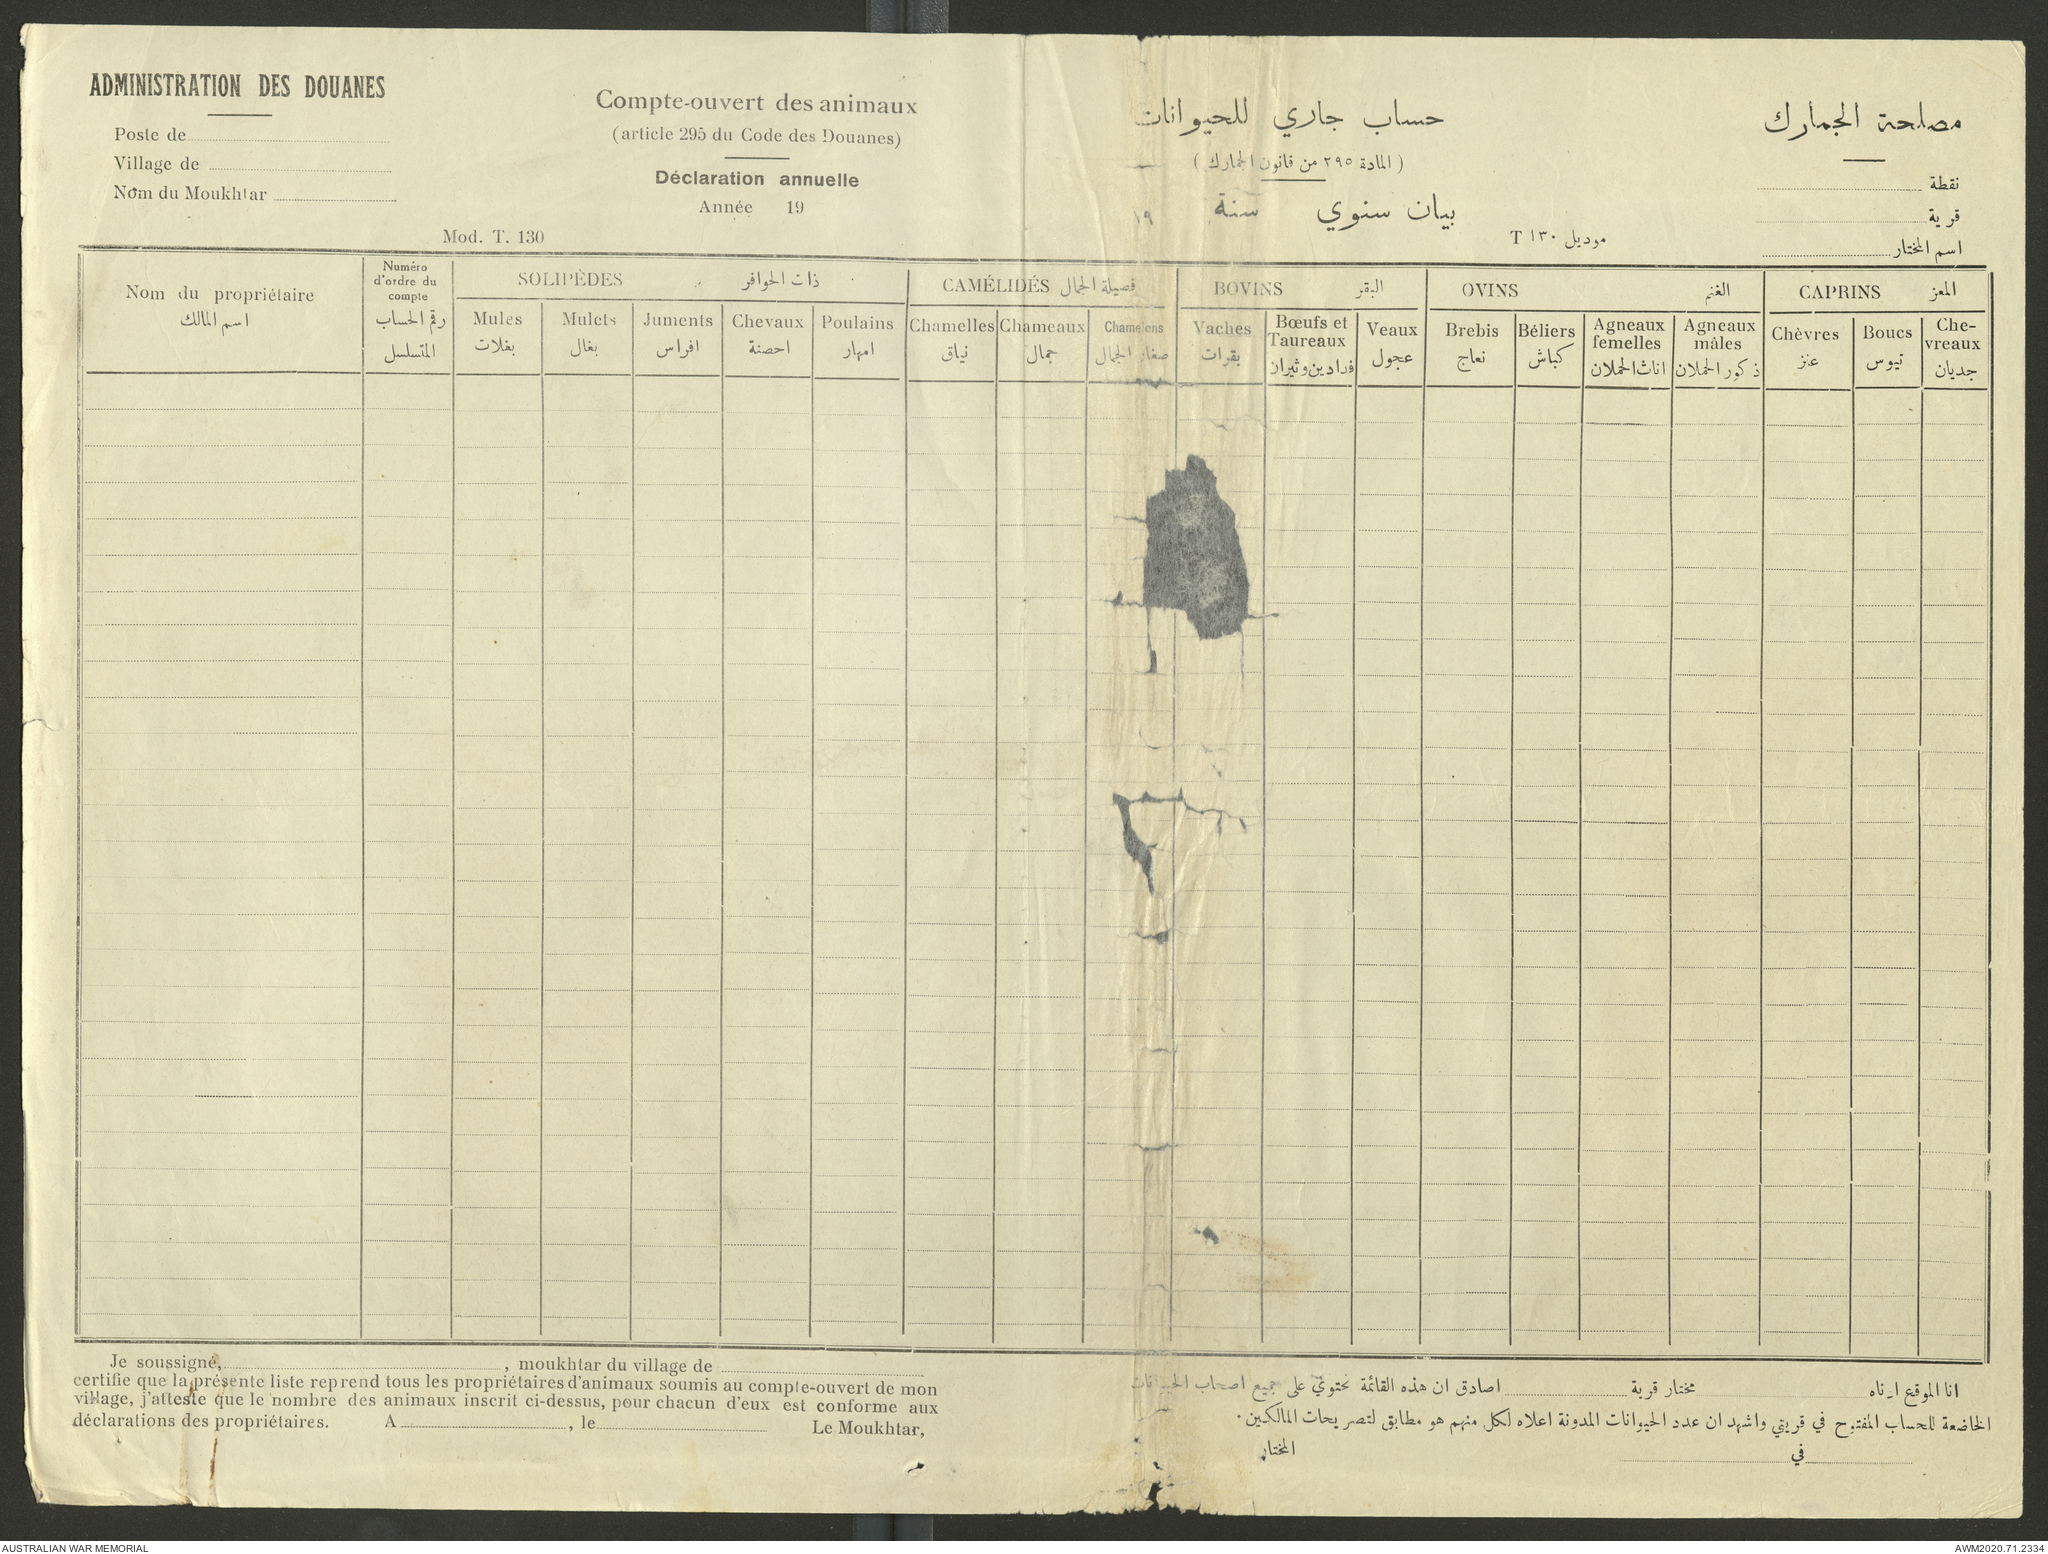 ADMINISTRATION DES DOUANES
Poste de
Village de
Nom du Moukhtar
Compte-ouvert des animaux
(article 295 du Code des Douanes)
Déclaration annuelle
Année 19
Mod. T. 130
حساب جاري للحيوانات
( المادة ٢٩٥ من قانون الجمارك )
بيان سنوي سنة ١٩
موديل ١٣٠ T
مصلحة الجمارك
نقطة
قرية
اسم المختار
Nom du propriétaire
اسم المالك
Numéro
d'ordre du
compte
رقم الحساب
المتسلسل
SOLIPÈDES ذات الحوافر
Mules
بغلات
Mulets
بغال
Juments
افراس
Chevaux
احصنة
Poulains
امهار
CAMÉLIDÉS فصيلة الجمال
Chamelles
نياق
Chameaux
جمال
Chamelons
صغار الجمال
BOVINS البقر
Vaches
بقرات
Bœufs et
Taureaux
فدادين وثيران
Veaux
عجول
OVINS الغنم
Brebis
نعاج
Béliers
كباش
Agneaux
femelles
اناث الحملان
Agneaux
mâles
ذكور الحملان
CAPRINS المعز
Chèvres
عنز
Boucs
تيوس
Che-
vreaux
جديان
Je soussigné, , moukhtar du village de
certifie que la présente liste reprend tous les propriétaires d'animaux soumis au compte-ouvert de mon
village, j'atteste que le nombre des animaux inscrit ci-dessus, pour chacun d'eux est conforme aux
déclarations des propriétaires. A , le
Le Moukhtar,
انا الموقع ادناه مختار قرية اصادق ان هذه القائمة تحتوي على جميع اصحاب الحيوانات
الخاضعة للحساب المفتوح في قريتي واشهد ان عدد الحيوانات المدونة اعلاه لكل منهم هو مطابق لتصريحات المالكين.
في المختار
AUSTRALIAN WAR MEMORIAL
AWM2020.71.2334